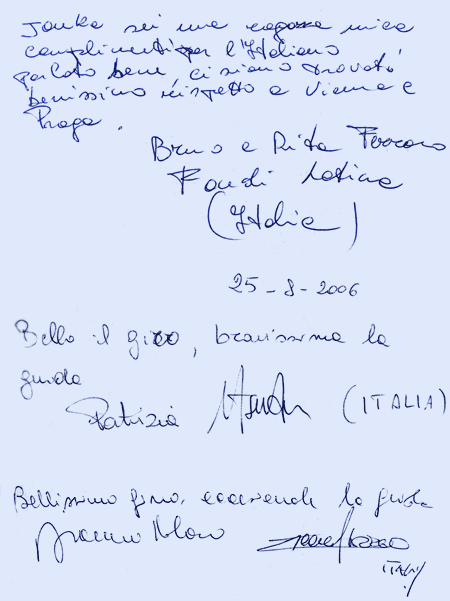 Janka sei una ragazza unica
complimenti per l'Italiano
parlato bene, ci siamo trovati
benissimo rispetto a Vienna e
Praga.
Bruno e Rita Ferraro
Fondi Latina
(Italia)
25-8-2006
Bello il giro, bravissima la
guida
Patrizia (ITALIA)
Bellissimo giro, eccezionale la guida
ITALY!